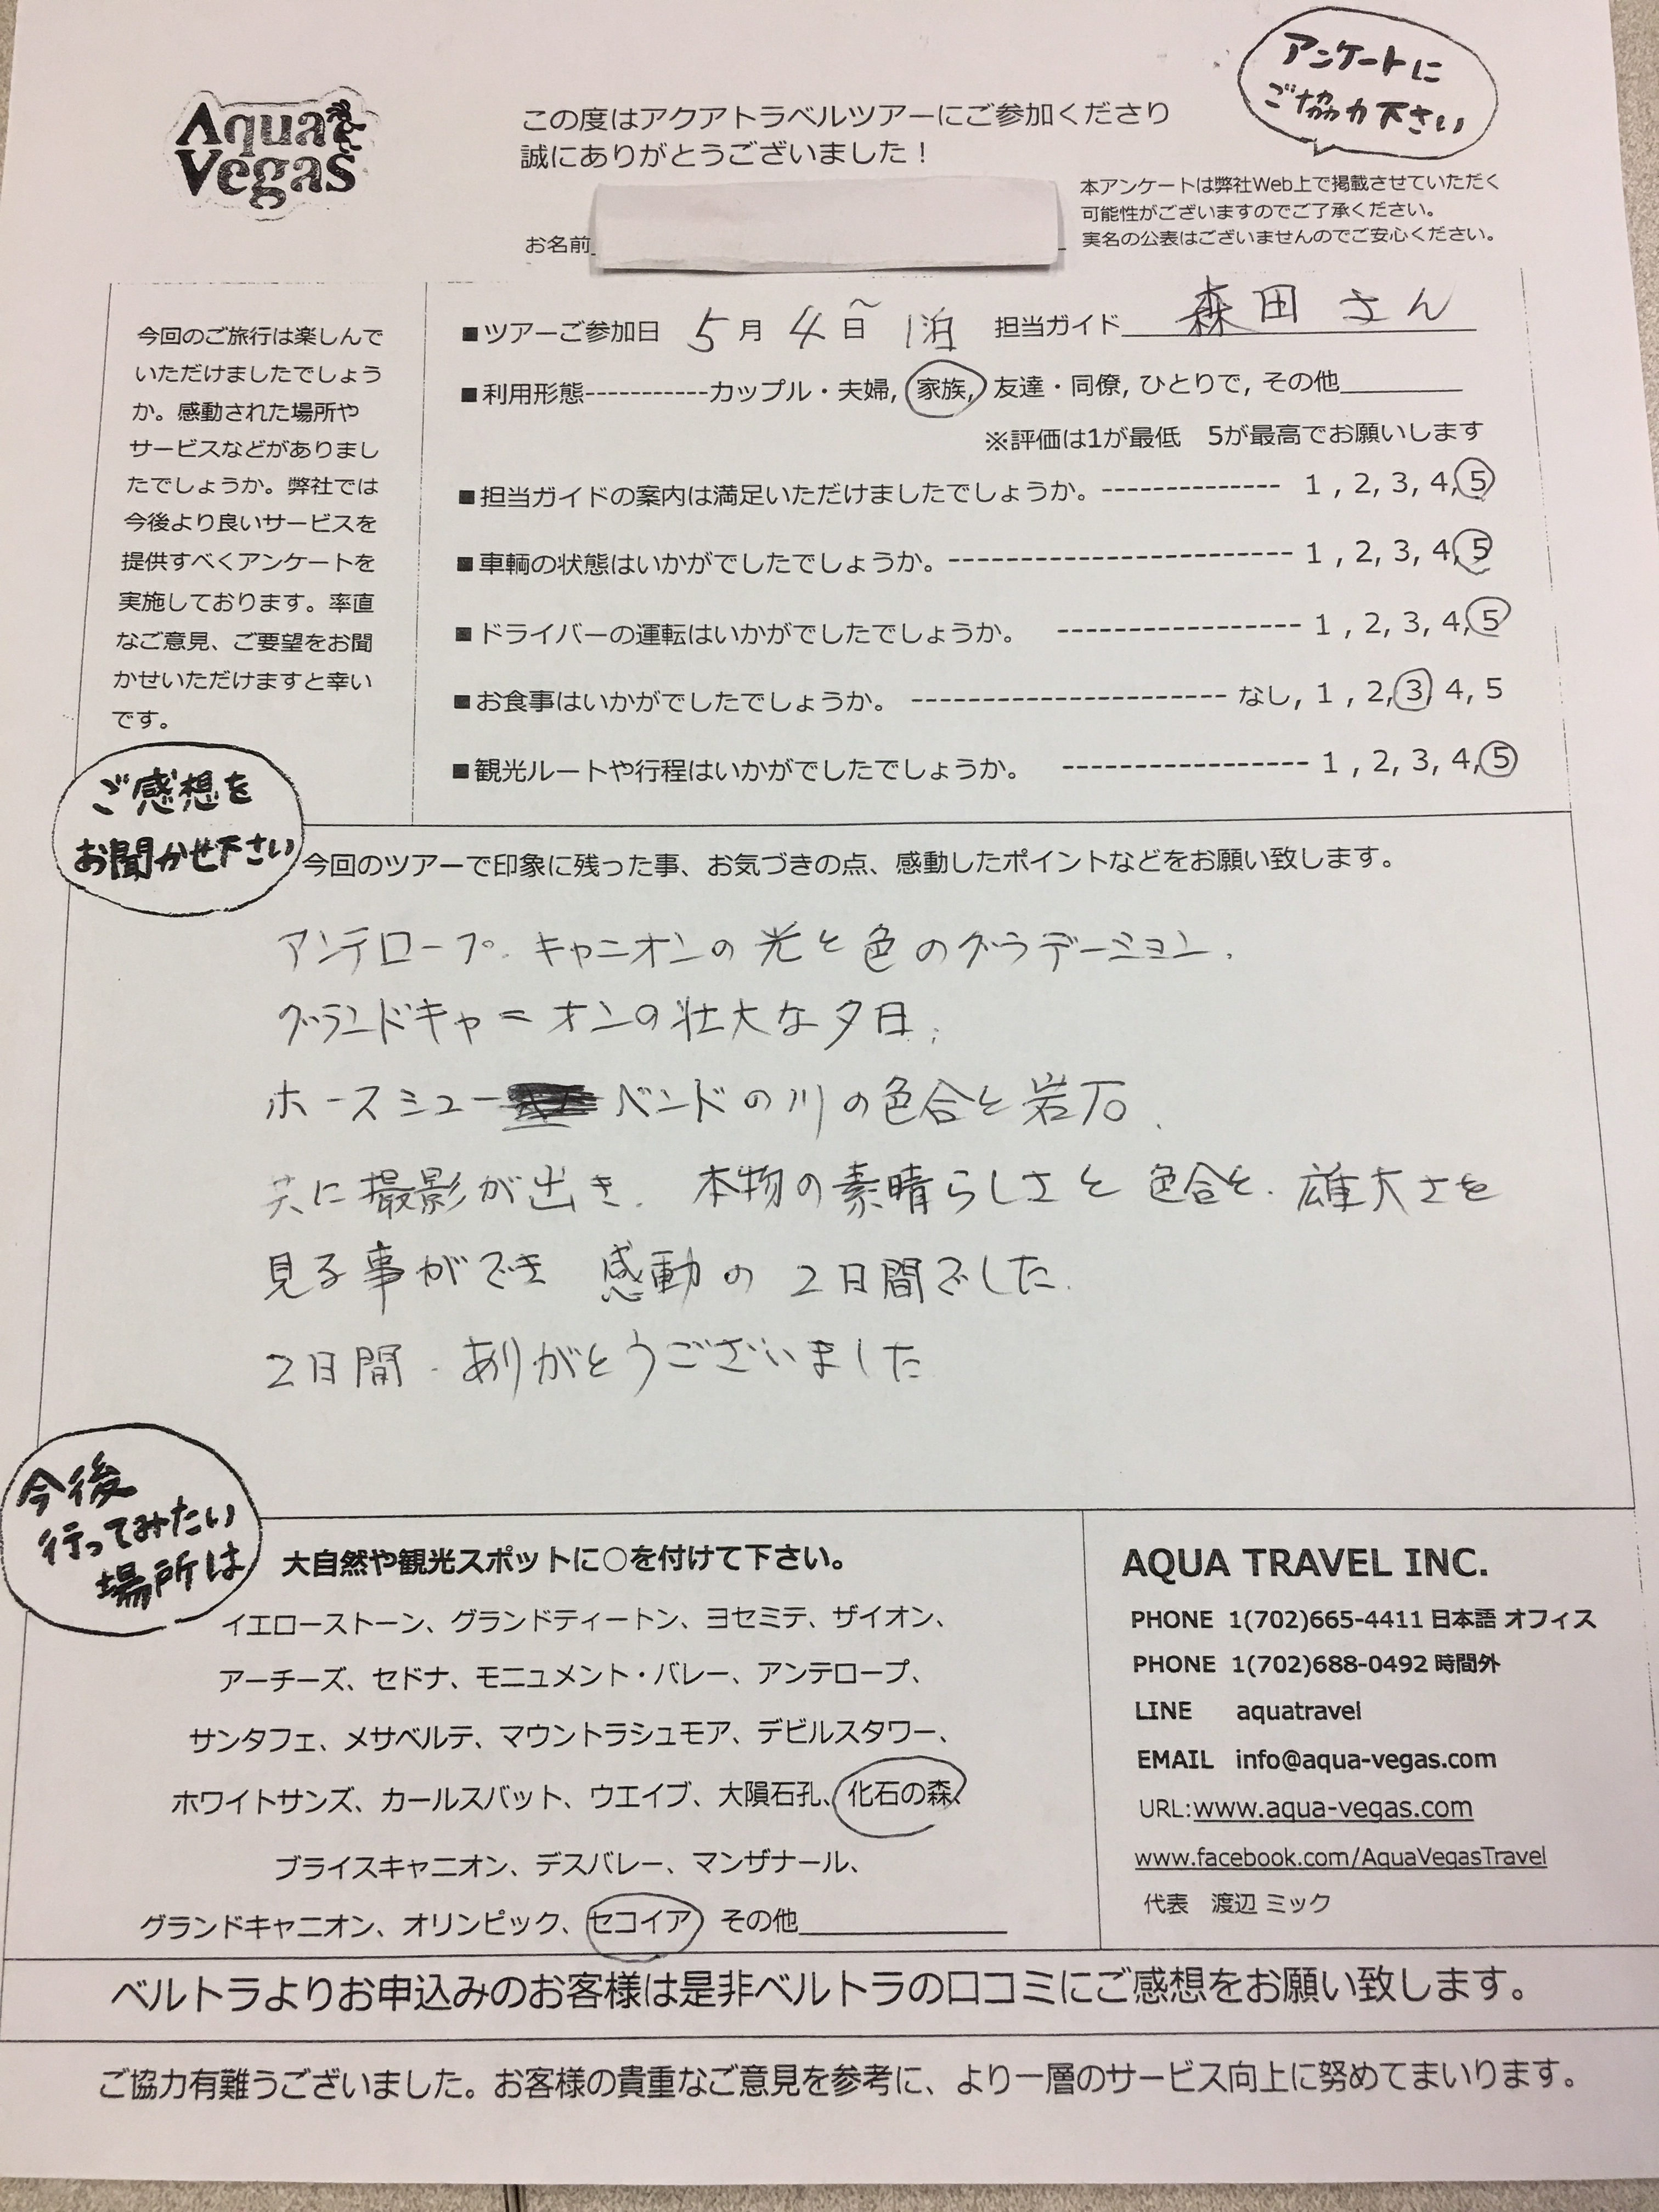 Aqua
Vegas
この度はアクアトラベルツアーにご参加くださり
誠にありがとうございました！
アンケートに
ご協力下さい
本アンケートは弊社Web上で掲載させていただく
可能性がございますのでご了承ください。
実名の公表はございませんのでご安心ください。
お名前
今回のご旅行は楽しんで
いただけましたでしょう
か。感動された場所や
サービスなどがありまし
たでしょうか。弊社では
今後より良いサービスを
提供すべくアンケートを
実施しております。率直
なご意見、ご要望をお聞
かせいただけますと幸い
です。
■ツアーご参加日 5月4日~ 1泊 担当ガイド 森田さん
■利用形態-----------カップル・夫婦, 家族, 友達・同僚, ひとりで, その他________
※評価は1が最低　5が最高でお願いします
■担当ガイドの案内は満足いただけましたでしょうか。-------------- 1 , 2, 3, 4, 5
■車輌の状態はいかがでしたでしょうか。----------------------- 1 , 2, 3, 4, 5
■ドライバーの運転はいかがでしたでしょうか。 ----------------- 1 , 2, 3, 4, 5
■お食事はいかがでしたでしょうか。 --------------------- なし, 1 , 2, 3, 4, 5
■観光ルートや行程はいかがでしたでしょうか。 ----------------- 1 , 2, 3, 4, 5
ご感想を
お聞かせ下さい
今回のツアーで印象に残った事、お気づきの点、感動したポイントなどをお願い致します。
アンテロープ.キャニオンの光と色のグラデーション.
グランドキャニオンの壮大な夕日.
ホースシューベンドの川の色合と岩石.
共に撮影が出き. 本物の素晴らしさと色合と.雄大さを
見る事ができ 感動の2日間でした.
2日間.ありがとうございました
今後
行ってみたい
場所は
大自然や観光スポットに○を付けて下さい。
イエローストーン、グランドティートン、ヨセミテ、ザイオン、
アーチーズ、セドナ、モニュメント・バレー、アンテロープ、
サンタフェ、メサベルテ、マウントラシュモア、デビルスタワー、
ホワイトサンズ、カールスバット、ウエイブ、大隕石孔、化石の森、
ブライスキャニオン、デスバレー、マンザナール、
グランドキャニオン、オリンピック、セコイア その他____________
AQUA TRAVEL INC.
PHONE 1(702)665-4411 日本語 オフィス
PHONE 1(702)688-0492 時間外
LINE aquatravel
EMAIL info@aqua-vegas.com
URL:www.aqua-vegas.com
www.facebook.com/AquaVegasTravel
代表　渡辺 ミック
ベルトラよりお申込みのお客様は是非ベルトラの口コミにご感想をお願い致します。
ご協力有難うございました。お客様の貴重なご意見を参考に、より一層のサービス向上に努めてまいります。